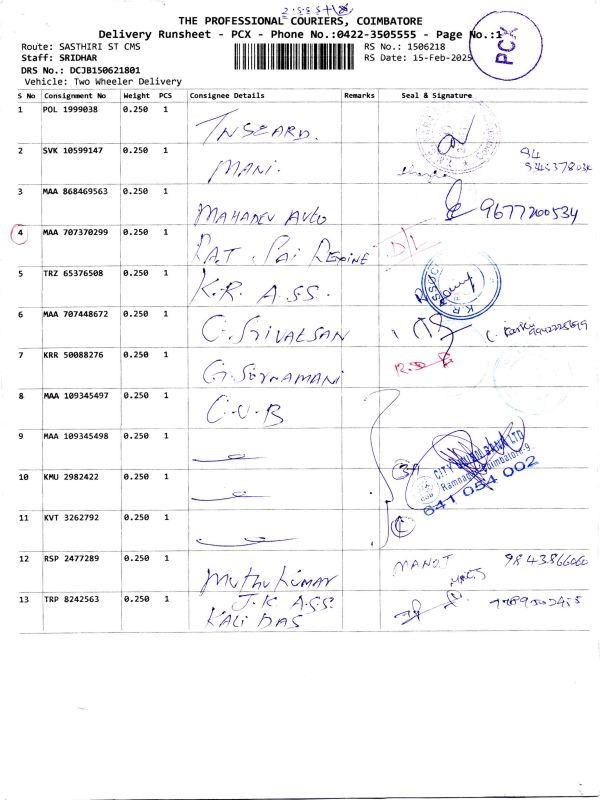 THE PROFESSIONAL COURIERS, COIMBATORE
Delivery Runsheet - PCX - Phone No.:0422-3505555 - Page No.:1
PCX
Route: SASTHIRI ST CMS
RS No.: 1506218
Staff: SRIDHAR
RS Date: 15-Feb-2025
DRS No.: DCJB150621801
Vehicle: Two Wheeler Delivery
S No Consignment No Weight PCS Consignee Details Remarks Seal & Signature
1 POL 1999038 0.250 1
2 SVK 10599147 0.250 1 MANI.
3 MAA 868469563 0.250 1 MAHADEV AUTO 9677200534
4 MAA 707370299 0.250 1 D/L
5 TRZ 65376508 0.250 1 K.R. ASS.
6 MAA 707448672 0.250 1 C. SRIVALSAN
7 KRR 50088276 0.250 1
8 MAA 109345497 0.250 1 C.U.B
9 MAA 109345498 0.250 1
CITY UNION BANK LTD
Ramnagar, Coimbatore-9.
641 054 002
10 KMU 2982422 0.250 1
11 KVT 3262792 0.250 1
12 RSP 2477289 0.250 1 Muthu Kumar MANO.T 9843866060
13 TRP 8242563 0.250 1 J.K ASS.
KALI DAS